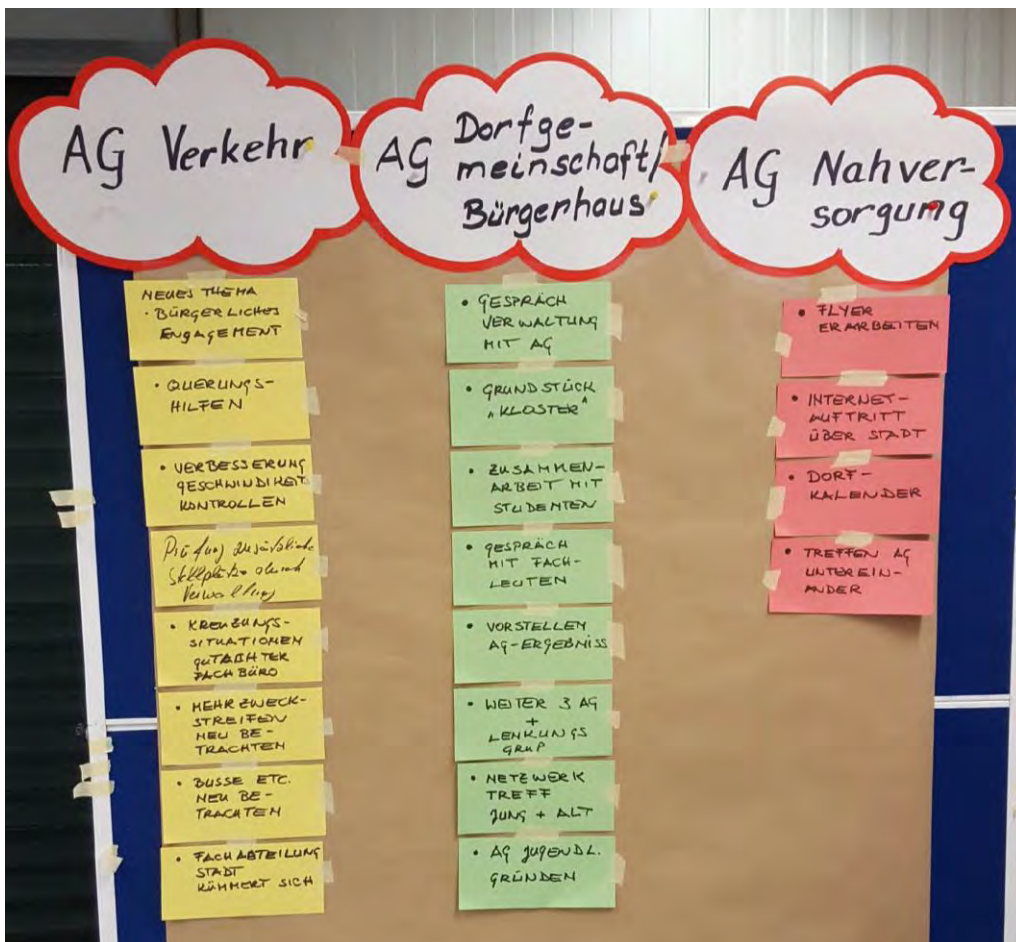 AG Verkehr
NEUES THEMA
· BÜRGERLICHES
ENGAGEMENT
• QUERUNGS-
HILFEN
• VERBESSERUNG
GESCHWINDIKEIT
KONTROLLEN
Prüfung zusätzliche
Stellplätze durch
Verwaltung
• KREUZUNGS-
SITUATIONEN
GUTACHTER
FACHBÜRO
• MEHRZWECK-
STREIFEN
NEU BE-
TRACHTEN
• BUSSE ETC.
NEU BE-
TRACHTEN
• FACHABTEILUNG
STADT
KÜMMERT SICH
AG Dorfge-
meinschaft/
Bürgerhaus
• GESPRÄCH
VERWALTUNG
MIT AG
• GRUNDSTÜCK
„KLOSTER"
• ZUSAMMEN-
ARBEIT MIT
STUDENTEN
• GESPRÄCH
MIT FACH-
LEUTEN
• VORSTELLEN
AG-ERGEBNISS
• WEITER 3 AG
+
LENKUNGS
GRUP
• NETZWERK
TREFF
JUNG + ALT
• AG JUGENDL.
GRÜNDEN
AG Nahver-
sorgung
• FLYER
ERARBEITEN
• INTERNET-
AUFTRITT
ÜBER STADT
• DORF-
KALENDER
• TREFFEN AG
UNTEREIN-
ANDER